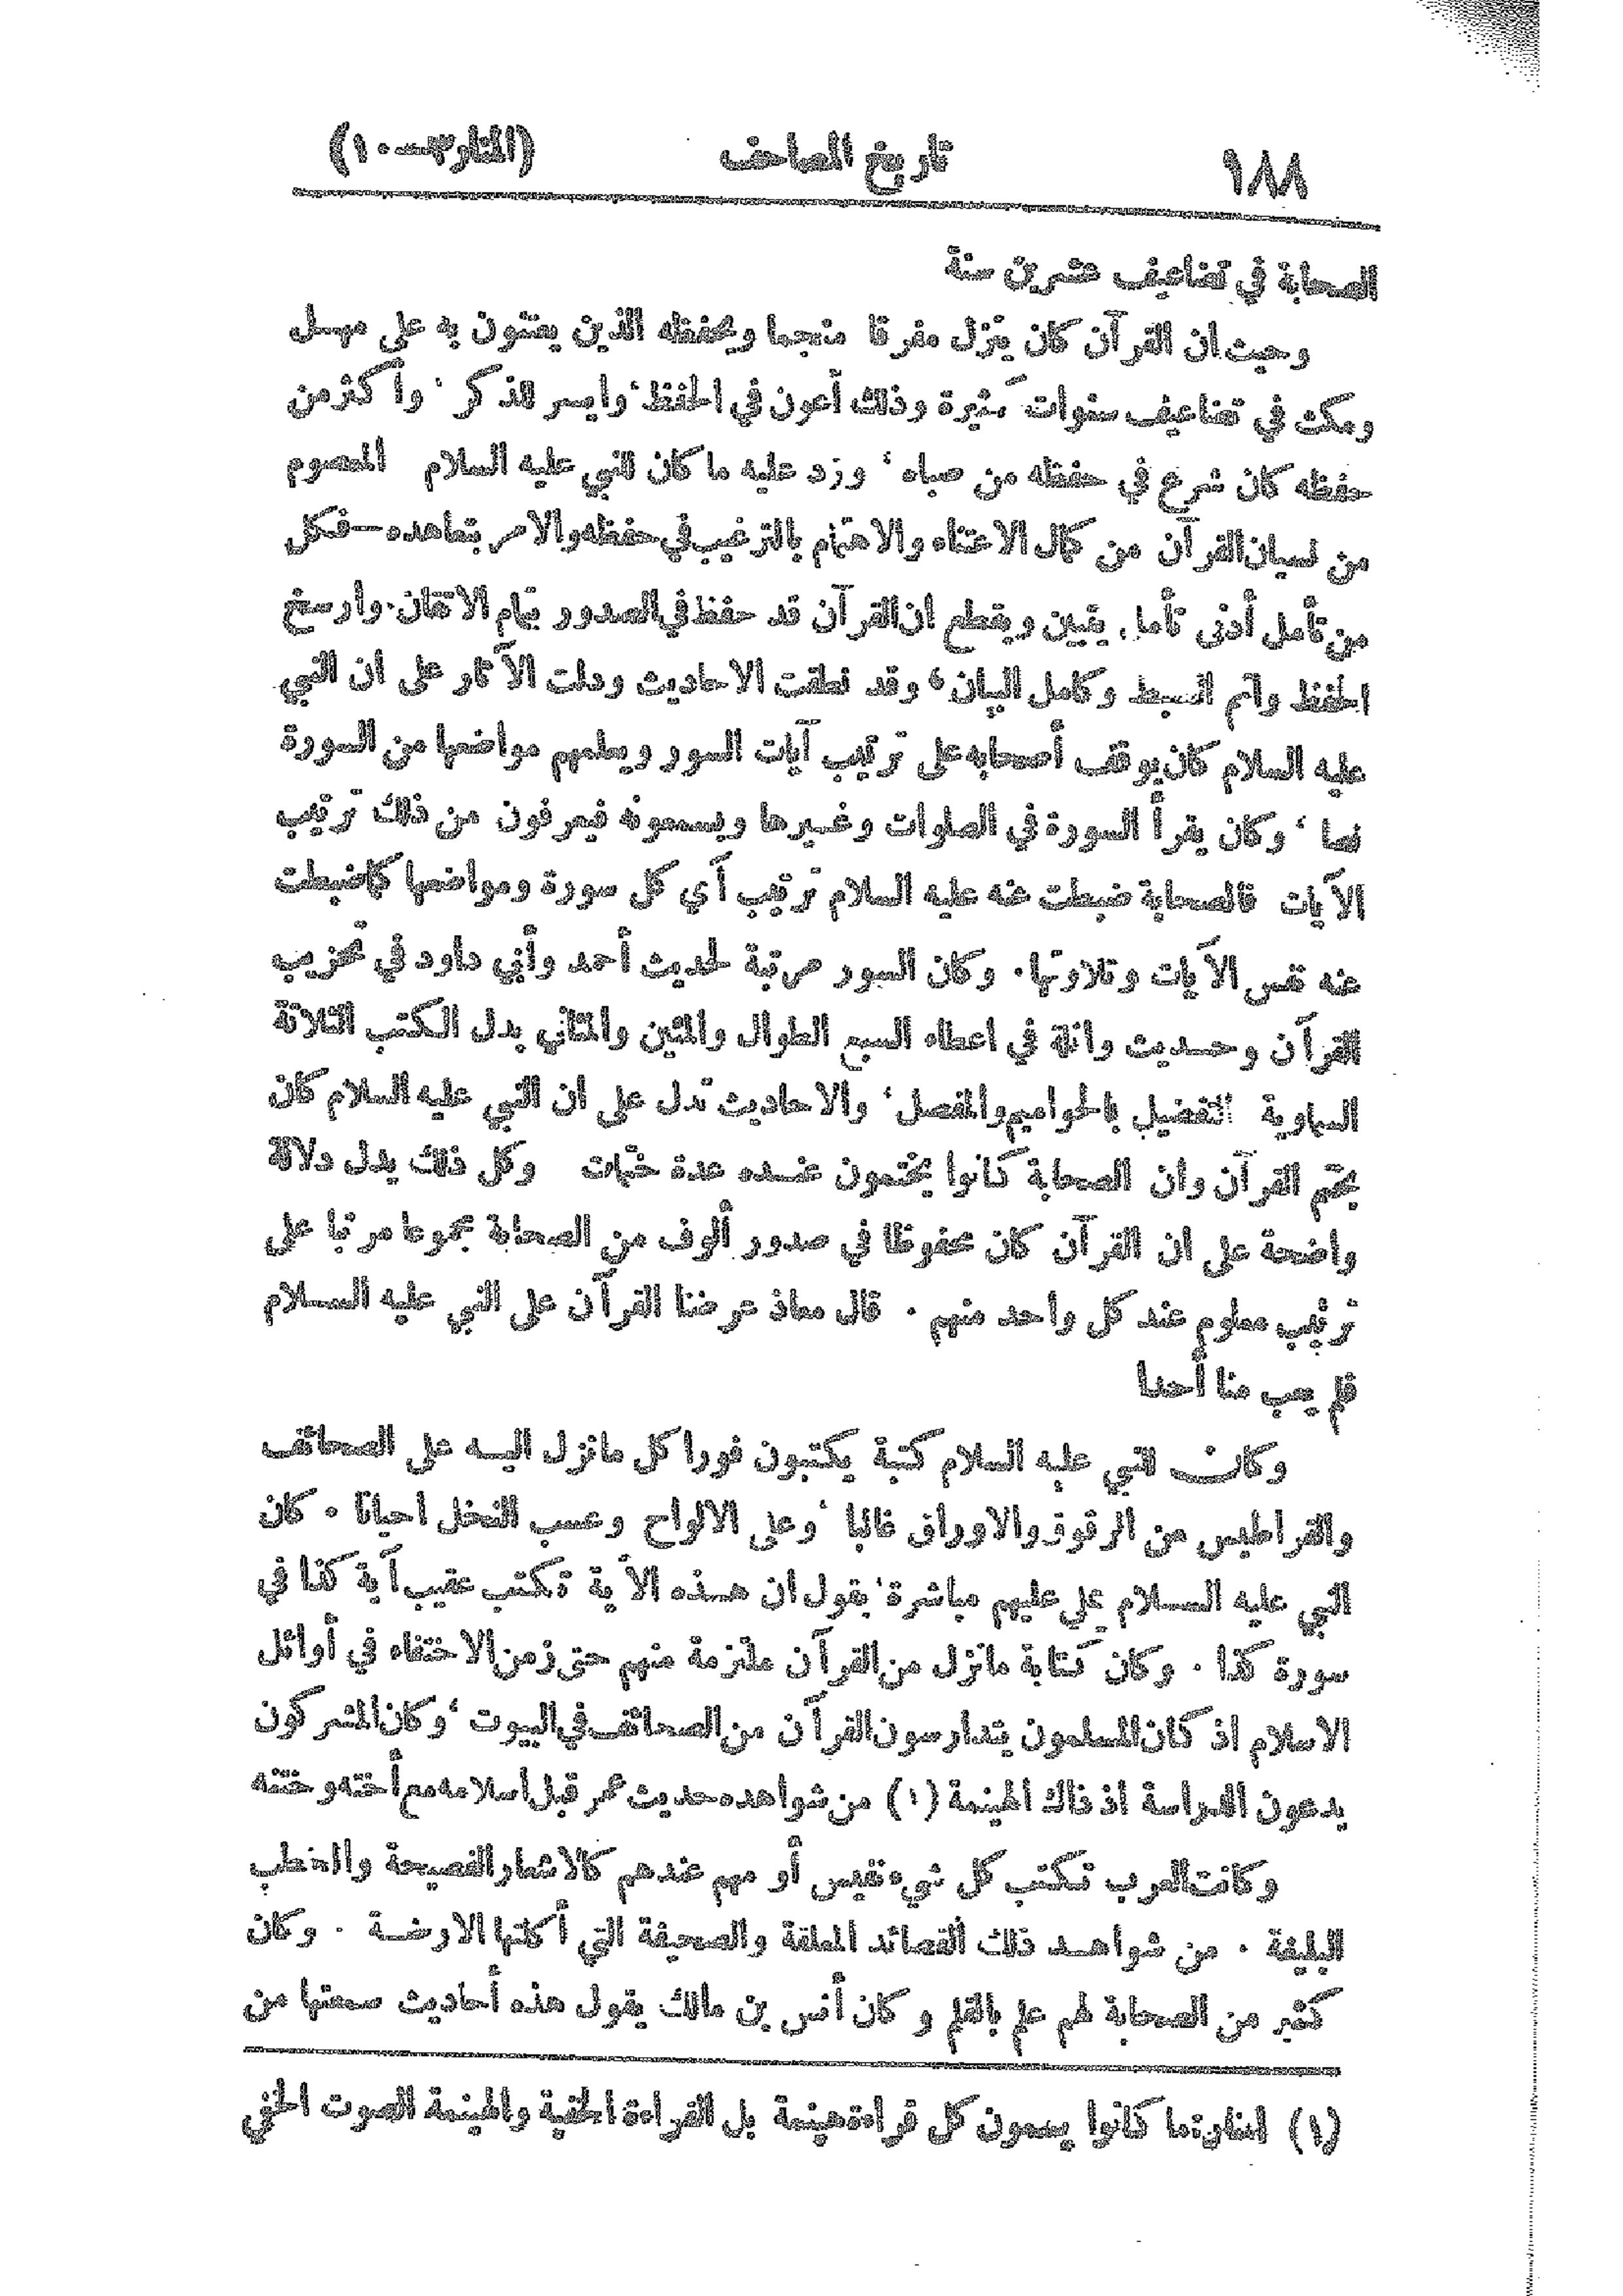 ١٨٨ تاريخ المصاحف (المنار٣—١٠)
الصحابة في تضاعيف عشرين سنة
وحيث ان القرآن كان ينزل مفرقا منجما ويحفظه الذين يعتنون به على مهل
ومكث في تضاعيف سنوات كثيرة وذلك أعون في الحفظ، وايسر للذكر، وأكثر من
حفظه كان شرع في حفظه من صباه، وزد عليه ما كان للنبي عليه السلام المعصوم
من نسيان القرآن من كمال الاعتناء والاهتمام بالترغيب في حفظه والامر بتعاهده—فكل
من تأمل أدنى تأمل. يتبين ويقطع ان القرآن قد حفظ في الصدور بتمام الاتقان. وأرسخ
الحفظ وأتم الضبط وكامل البيان، وقد نطقت الاحاديث ودلت الآثار على ان النبي
عليه السلام كان يوقف أصحابه على ترتيب آيات السور ويعلمهم مواضعها من السورة
نصا، وكان يقرأ السورة في الصلوات وغيرها ويسمعونه فيعرفون من ذلك ترتيب
الآيات فالصحابة ضبطت عنه عليه السلام ترتيب آي كل سورة ومواضعها كما ضبطت
عنه نفس الآيات وتلاوتها. وكان السور مرتبة لحديث أحمد وأبي داود في تحزيب
القرآن وحديث واثلة في اعطاء السبع الطوال والمئين والمثاني بدل الكتب الثلاثة
السماوية التفضيل بالحواميم والمفصل، والاحاديث تدل على ان النبي عليه السلام كان
يختم القرآن وان الصحابة كانوا يختمون عنده عدة ختمات وكل ذلك يدل دلالة
واضحة على ان القرآن كان محفوظا في صدور ألوف من الصحابة مجموعا مرتبا على
ترتيب معلوم عند كل واحد منهم. قال معاذ عرضنا القرآن على النبي عليه السلام
فلم يعب منا أحدا
وكانت للنبي عليه السلام كتبة يكتبون فورا كل ما نزل اليه على الصحائف
والقراطيس من الرقوق والاوراق غالبا، وعلى الالواح وعسب النخل احيانا. كان
النبي عليه السلام يملي عليهم مباشرة، يقول ان هذه الآية تكتب عقيب آية كذا في
سورة كذا. وكان كتابة ما نزل من القرآن ملتزمة منهم حتى زمن الاختفاء في أوائل
الاسلام اذ كان المسلمون يتدارسون القرآن من الصحائف في البيوت، وكان المشركون
يدعون الدراسة اذ ذاك الهينمة (١) من شواهده حديث عمر قبل اسلامه مع أخته وختنه
وكانت العرب تكتب كل شيء نفيس أو مهم عندهم كالاشعار الفصيحة والخطب
البليغة. من شواهد ذلك القصائد المعلقة والصحيفة التي أكلتها الارضة. وكان
كثير من الصحابة لهم علم بالقلم وكان أنس بن مالك يقول هذه أحاديث سمعتها من
(١) المنار: ما كانوا يسمون كل قراءة هينمة بل القراءة الخفية والهينمة الصوت الخفي